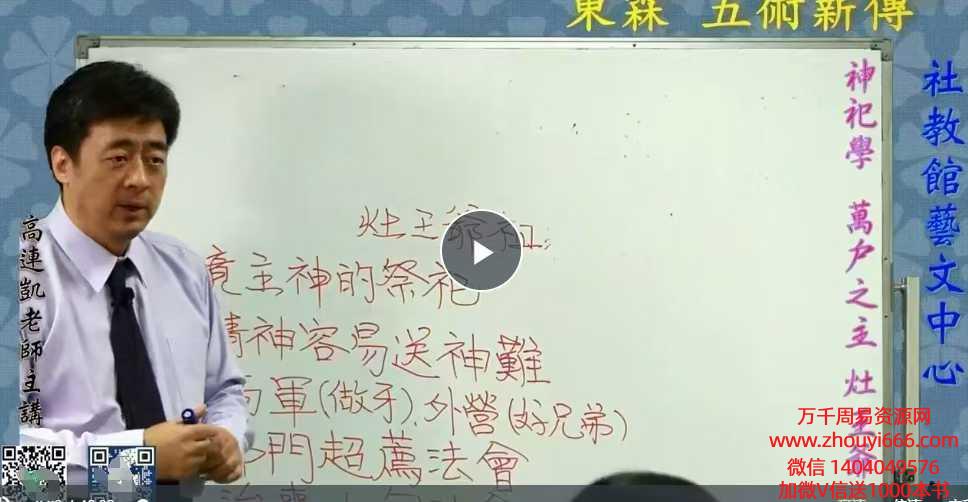 東森 五術新傳
社教館藝文中心
神祀學 萬戶之主 灶王爺
高連凱老師主講
灶王爺
主神的祭祀
神容易送神難
軍(做牙)、外營(好兄弟)
門超薦法會
万千周易资源网
www.zhouyi666.com
微信 1404049576
加微V信送1000本书